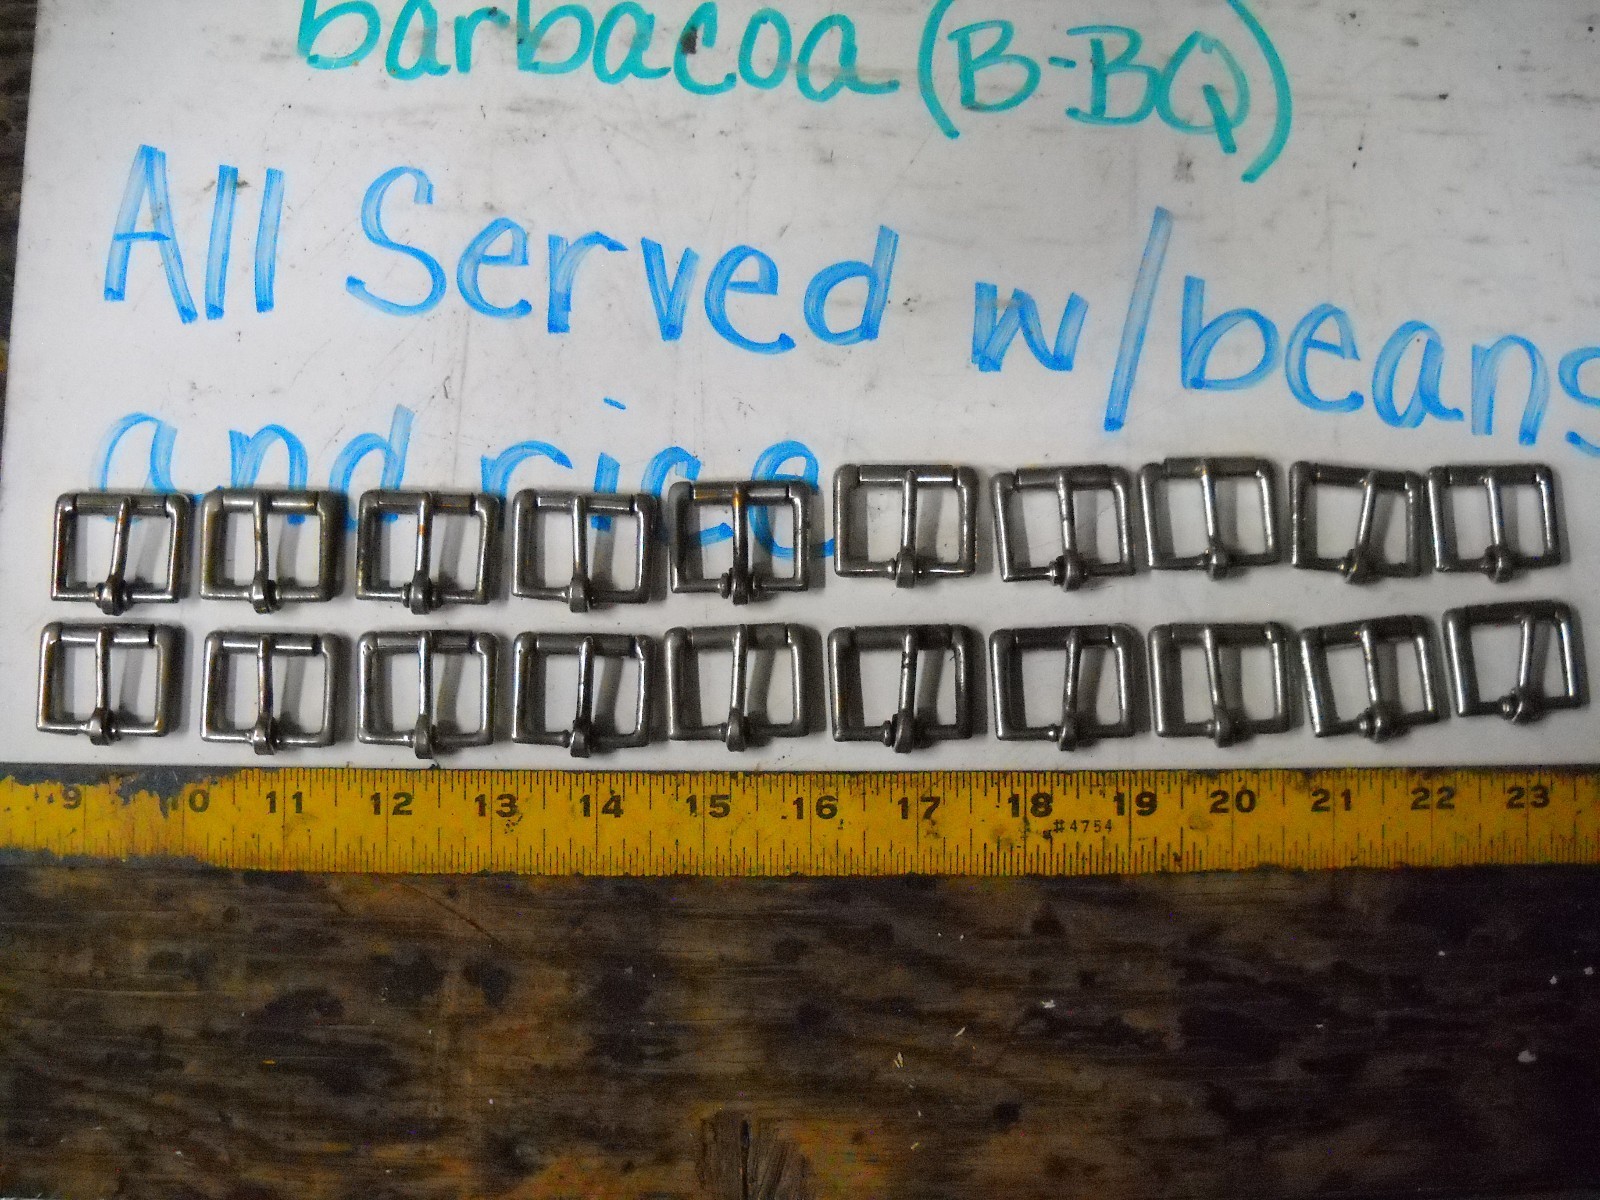 barbacoa (B-BQ)
All Served w/beans
and rice
9 10 11 12 13 14 15 16 17 18 19 20 21 22 23
#4754